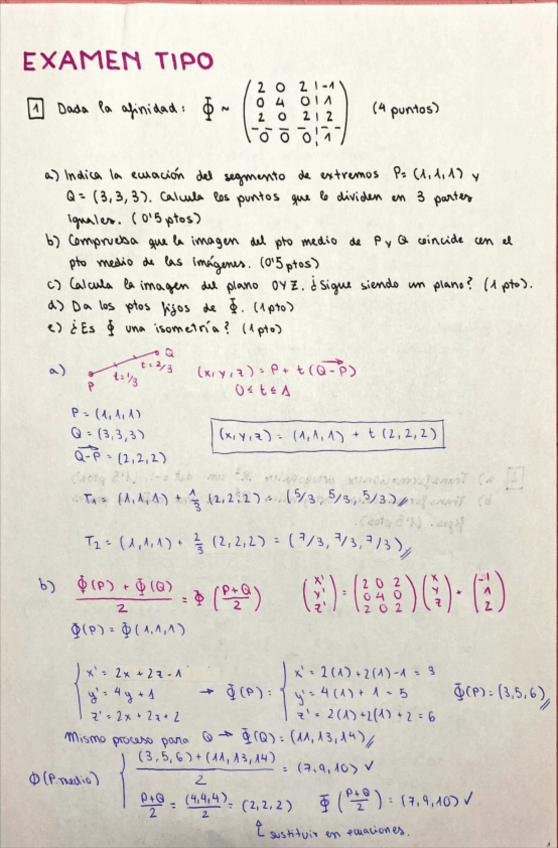 EXAMEN TIPO
1 Dada la afinidad: Φ ~ ( 2 0 2 | -1
0 4 0 | 1
2 0 2 | 2
0 0 0 | 1 ) (4 puntos)
a) Indica la ecuación del segmento de extremos P=(1,1,1) y
Q=(3,3,3). Calcula los puntos que lo dividen en 3 partes
iguales. (0'5 ptos)
b) Comprueba que la imagen del pto medio de P y Q coincide con el
pto medio de las imágenes. (0'5 ptos)
c) Calcula la imagen del plano OYZ. ¿Sigue siendo un plano? (1 pto).
d) Da los ptos fijos de Φ. (1 pto)
e) ¿Es Φ una isometría? (1 pto)
a) P t=1/3 t=2/3 Q (x,y,z) = P + t(Q-P)
0 ≤ t ≤ 1
P = (1,1,1)
Q = (3,3,3)
Q-P = (2,2,2)
(x,y,z) = (1,1,1) + t (2,2,2)
T1 = (1,1,1) + 1/3 (2,2,2) = (5/3, 5/3, 5/3)
T2 = (1,1,1) + 2/3 (2,2,2) = (7/3, 7/3, 7/3)
b) Φ(P) + Φ(Q) / 2 = Φ (P+Q / 2) (x' y' z') = (2 0 2
0 4 0
2 0 2) (x y z) + (-1 1 2)
Φ(P) = Φ(1,1,1)
x' = 2x + 2z - 1
y' = 4y + 1
z' = 2x + 2z + 2
→ Φ(P) =
x' = 2(1) + 2(1) - 1 = 3
y' = 4(1) + 1 = 5
z' = 2(1) + 2(1) + 2 = 6
Φ(P) = (3,5,6)
Mismo proceso para Q → Φ(Q) = (11,13,14)
Φ(P.medio) (3,5,6) + (11,13,14) / 2 = (7,9,10) ✓
P+Q / 2 = (4,4,4) / 2 = (2,2,2) Φ (P+Q / 2) = (7,9,10) ✓
sustituir en ecuaciones.